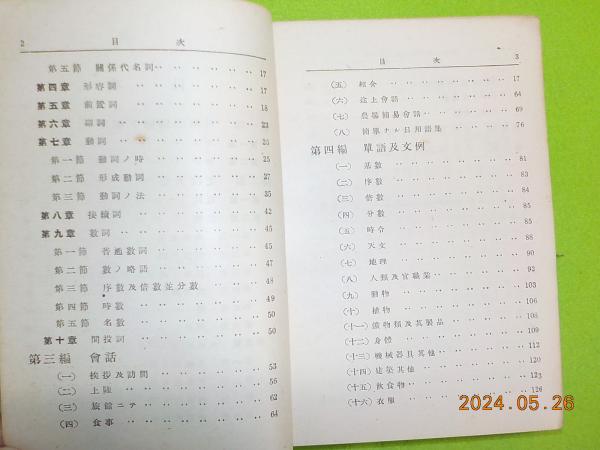 2 目次
第五節 關係代名詞 ‥ ‥ ‥ ‥ ‥ 17
第四章 形容詞 ‥ ‥ ‥ ‥ ‥ 17
第五章 前置詞 ‥ ‥ ‥ ‥ ‥ 18
第六章 副詞 ‥ ‥ ‥ ‥ ‥ 23
第七章 動詞 ‥ ‥ ‥ ‥ ‥ 25
第一節 動詞ノ時 ‥ ‥ ‥ ‥ 25
第二節 形成動詞 ‥ ‥ ‥ ‥ 27
第三節 動詞ノ法 ‥ ‥ ‥ ‥ 35
第八章 接續詞 ‥ ‥ ‥ ‥ ‥ 42
第九章 數詞 ‥ ‥ ‥ ‥ ‥ 45
第一節 普通數詞 ‥ ‥ ‥ ‥ 45
第二節 數ノ略語 ‥ ‥ ‥ ‥ 47
第三節 序數及倍數並分數 ‥ ‥ 48
第四節 時數 ‥ ‥ ‥ ‥ ‥ 49
第五節 名數 ‥ ‥ ‥ ‥ ‥ 50
第十章 間投詞 ‥ ‥ ‥ ‥ ‥ 50
第三編 會話
(一) 挨拶及訪問 ‥ ‥ ‥ ‥ 53
(二) 上陸 ‥ ‥ ‥ ‥ ‥ 56
(三) 旅舘ニテ ‥ ‥ ‥ ‥ 62
(四) 食事 ‥ ‥ ‥ ‥ ‥ 64
目次 3
(五) 紹介 ‥ ‥ ‥ ‥ ‥ 17
(六) 途上會話 ‥ ‥ ‥ ‥ 64
(七) 農場簡易會話 ‥ ‥ ‥ 69
(八) 簡單ナル日用語集 ‥ ‥ 76
第四編 單語及文例
(一) 基數 ‥ ‥ ‥ ‥ ‥ 81
(二) 序數 ‥ ‥ ‥ ‥ ‥ 83
(三) 倍數 ‥ ‥ ‥ ‥ ‥ 84
(四) 分數 ‥ ‥ ‥ ‥ ‥ 85
(五) 時令 ‥ ‥ ‥ ‥ ‥ 85
(六) 天文 ‥ ‥ ‥ ‥ ‥ 88
(七) 地理 ‥ ‥ ‥ ‥ ‥ 90
(八) 人類及官職業 ‥ ‥ ‥ 93
(九) 動物 ‥ ‥ ‥ ‥ ‥ 103
(十) 植物 ‥ ‥ ‥ ‥ ‥ 106
(十一) 鑛物類及其製品 ‥ ‥ 108
(十二) 身體 ‥ ‥ ‥ ‥ ‥ 109
(十三) 機械器具其他 ‥ ‥ ‥ 112
(十四) 建築其他 ‥ ‥ ‥ ‥ 119
(十五) 飮食物 ‥ ‥ ‥ ‥ 123
(十六) 衣服 ‥ ‥ ‥ ‥ ‥ 126
2024.05.26